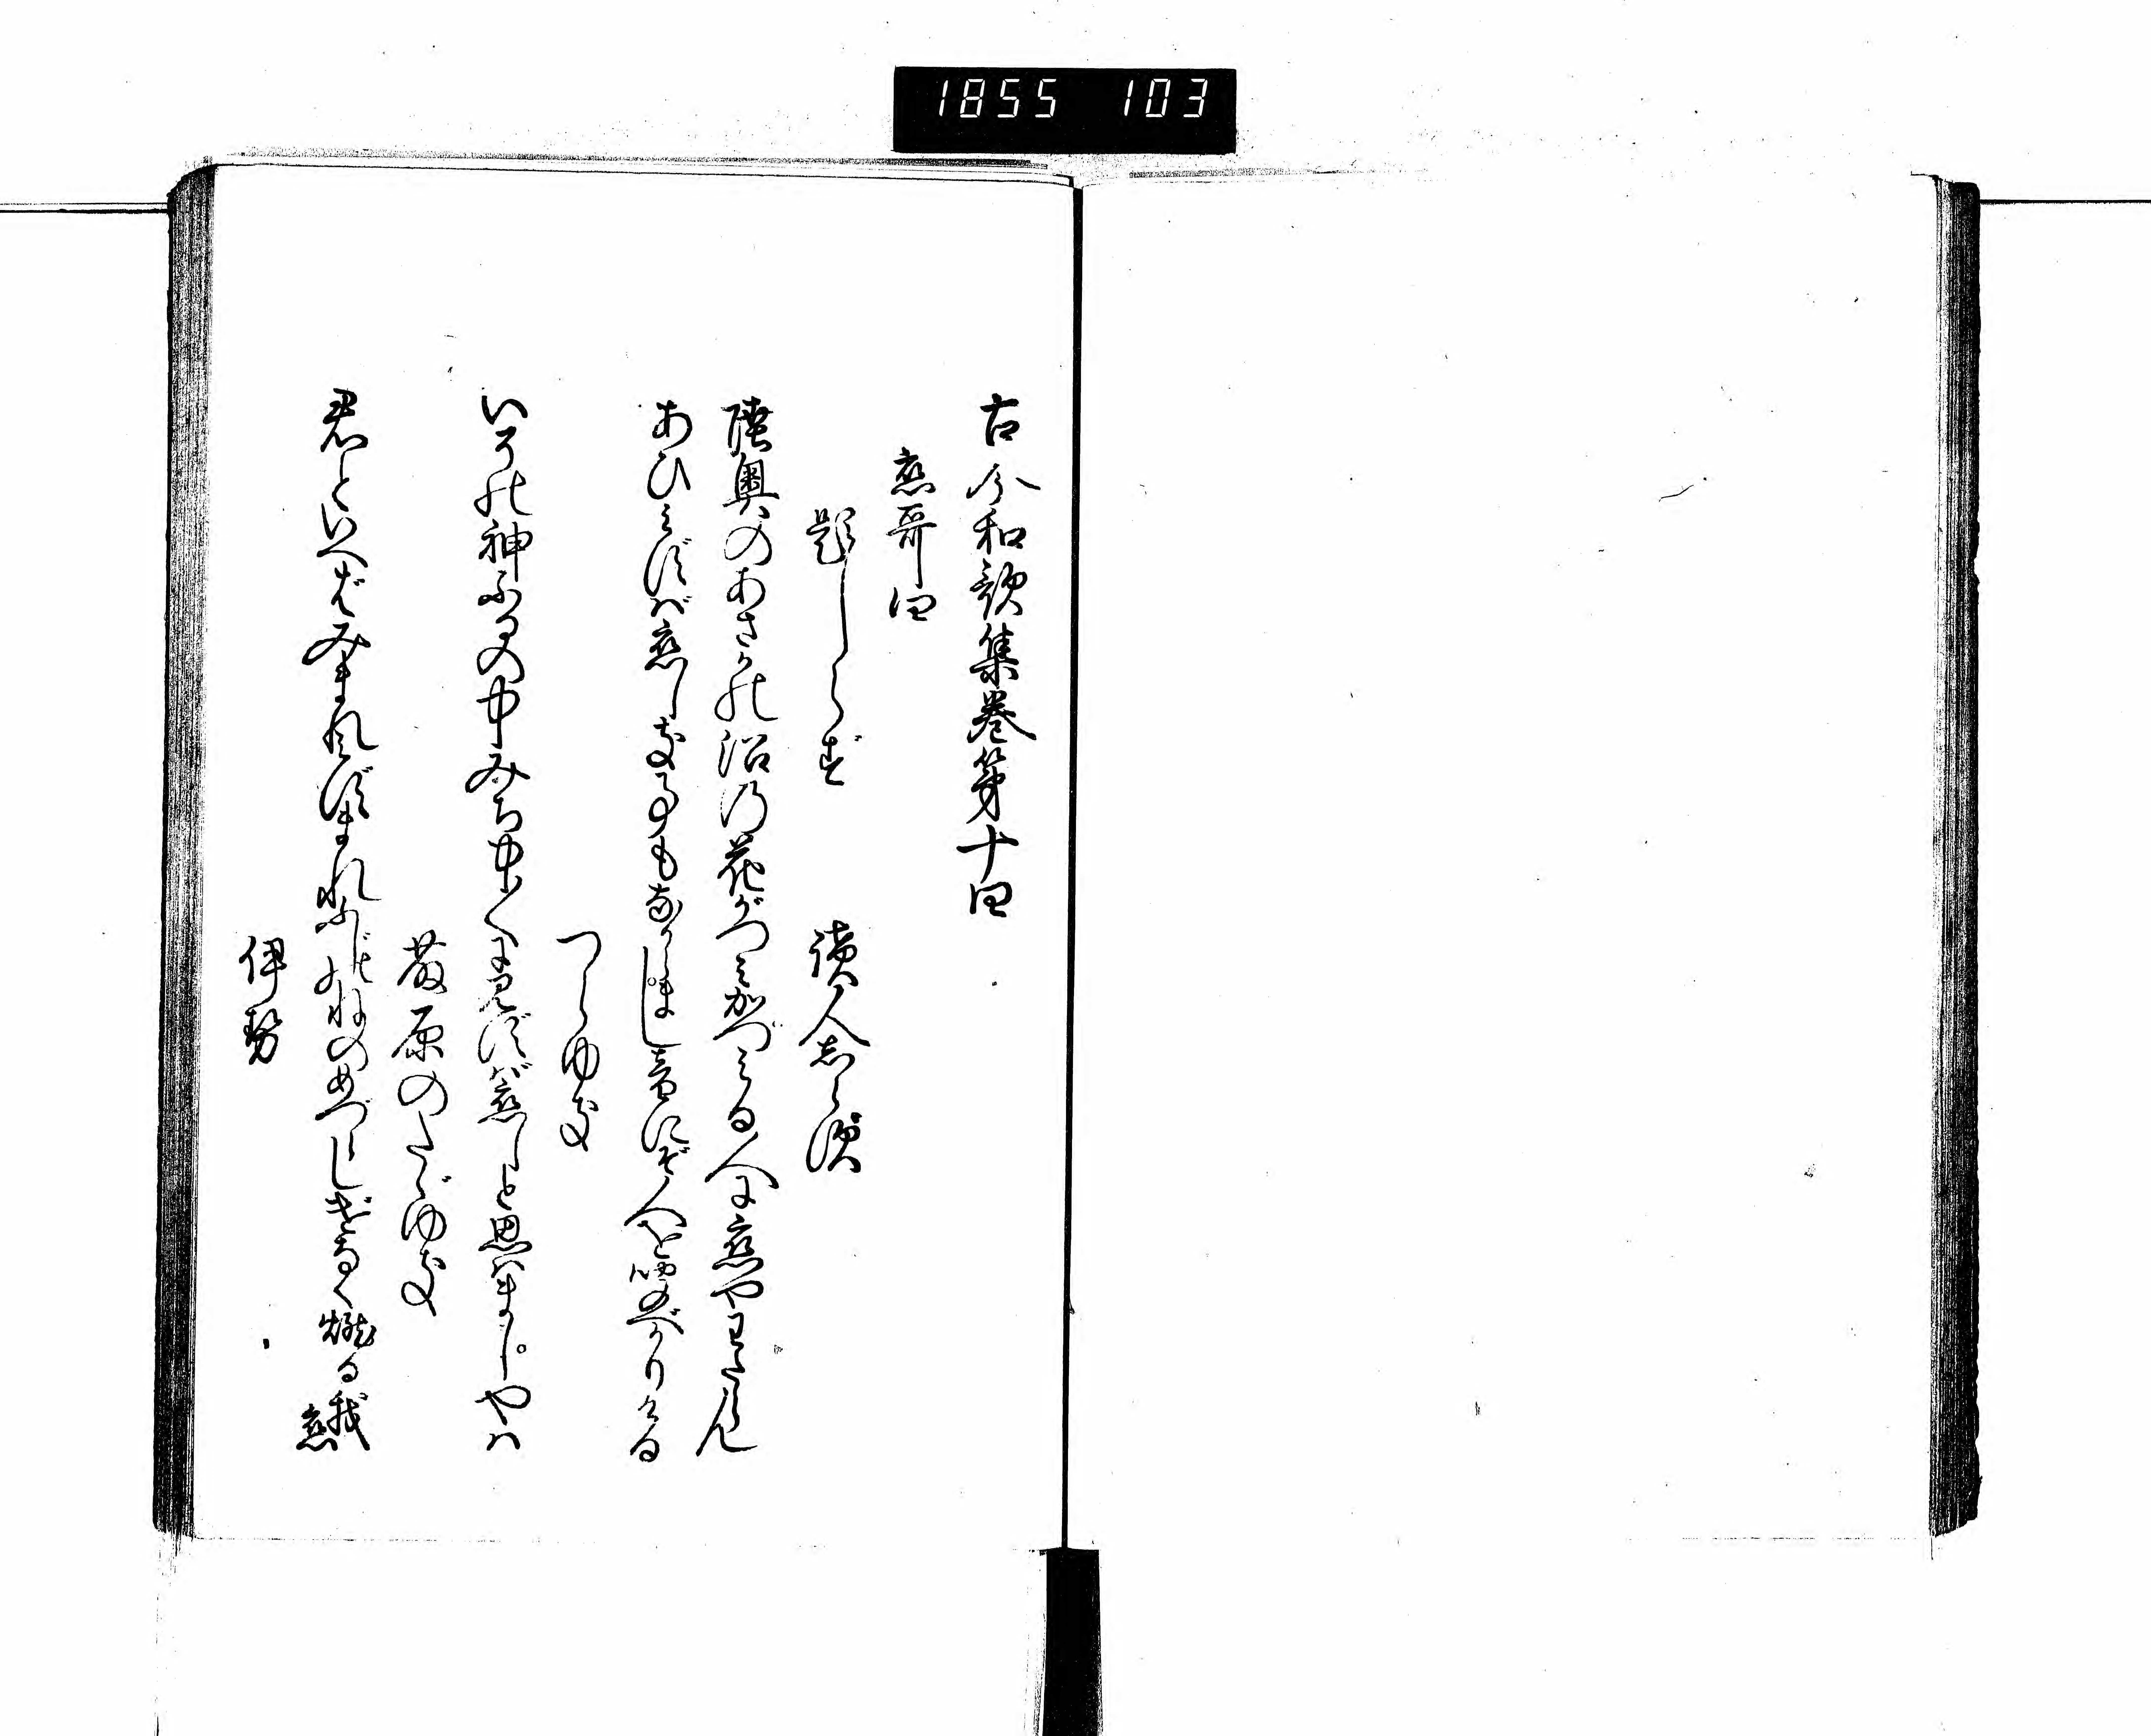 1855 103
古今和歌集巻第十四
恋哥四
題しらず
読人しらず
陸奥のあさかの沼の花がつみかつみる人に恋やわたらん
あひみずば恋しき事もなからまし音にぞ人を聞べかりける
つらゆき
いその神ふるの中みち中〳〵に見ずば恋しと思はましやは
藤原のたゞゆき
君といへばみまれみずまれふじのねのめづらしげなく燃る我恋
伊勢